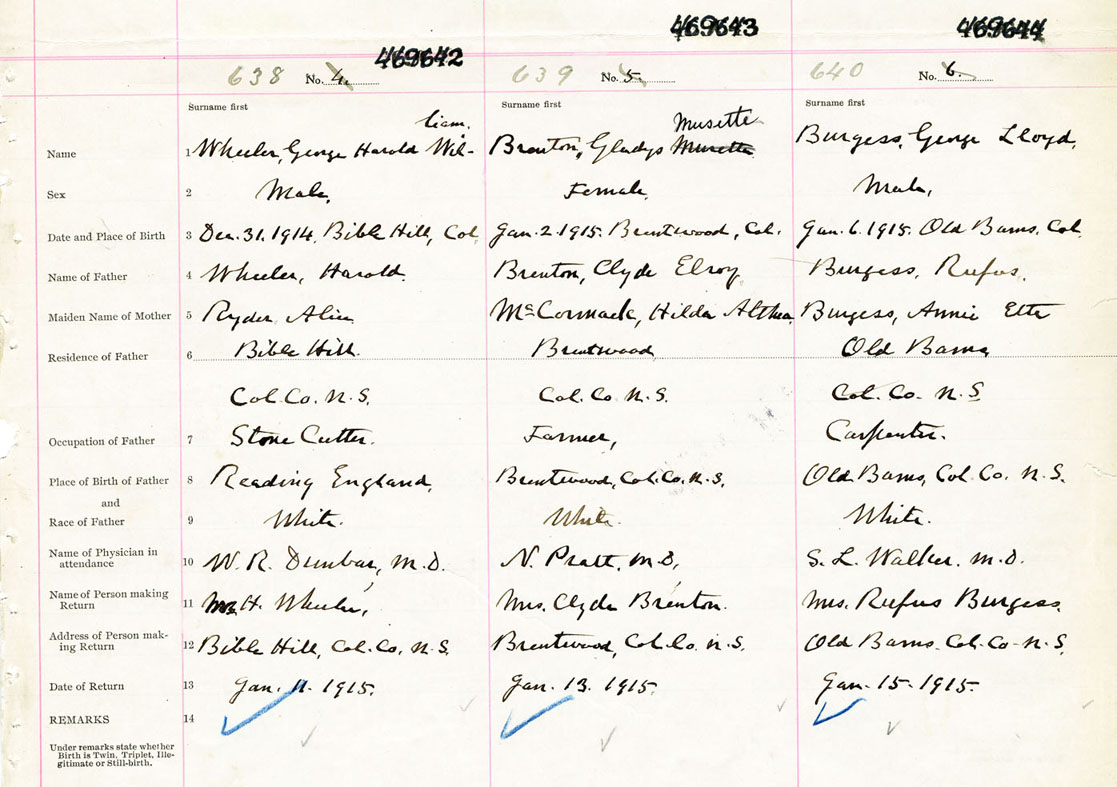 469642 469643 469644
638 No. 4. 639 No. 5. 640 No. 6.
Surname first Surname first Surname first
liam. Musette
Name 1 Wheeler, George Harold Wil- Brenton, Gladys Musette Burgess, George Lloyd,
Sex 2 Male, Female, Male,
Date and Place of Birth 3 Dec. 31. 1914. Bible Hill, Col. Jan. 2. 1915. Brentwood, Col. Jan. 6. 1915. Old Barns. Col.
Name of Father 4 Wheeler, Harold. Brenton, Clyde Elroy Burgess, Rufus.
Maiden Name of Mother 5 Ryder Alice McCormack, Hilda Althea Burgess, Annie Etta
Residence of Father 6 Bible Hill. Brentwood, Old Barns
Col. Co. N. S. Col. Co. N. S. Col. Co. N. S
Occupation of Father 7 Stone Cutter. Farmer, Carpenter.
Place of Birth of Father 8 Reading England, Brentwood, Col. Co. N. S. Old Barns, Col. Co. N. S.
and
Race of Father 9 White. White. White.
Name of Physician in attendance 10 W. R. Dunbar, M. D. N. Pratt, M. D, S. L. Walker. M. D.
Name of Person making Return 11 Mrs H. Wheeler, Mrs. Clyde Brenton. Mrs. Rufus Burgess.
Address of Person mak-ing Return 12 Bible Hill, Col. Co, N. S. Brentwood, Col. Co. N. S. Old Barns. Col. Co. N. S.
Date of Return 13 Jan. 11. 1915. Jan. 13. 1915. Jan. 15. 1915.
REMARKS 14
Under remarks state whether
Birth is Twin, Triplet, Ille-
gitimate or Still-birth.